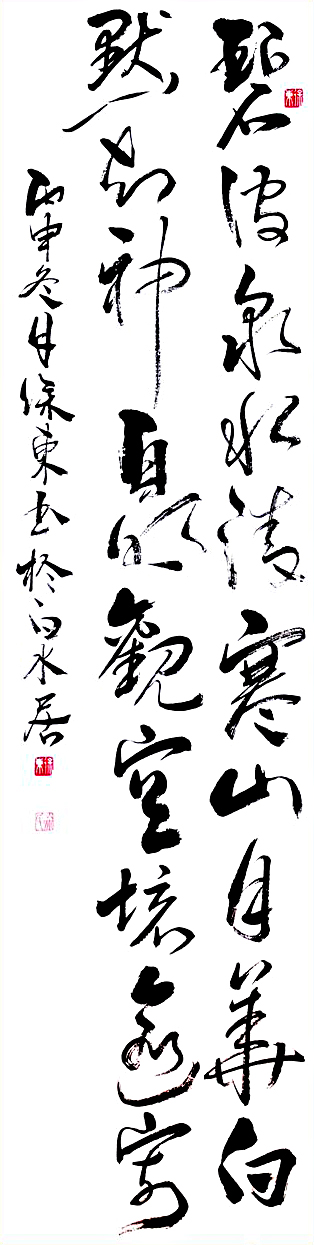 碧波泉水清寒山月華白
默知神自明觀空境逾寂
丙申冬月徐東书於白水居